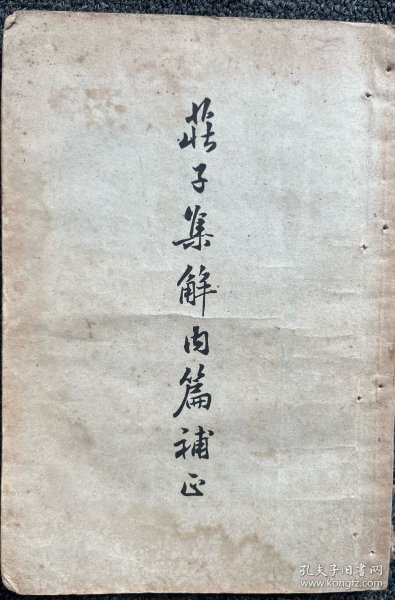 莊子集解内篇補正
孔夫子旧书网
www.kongfz.com